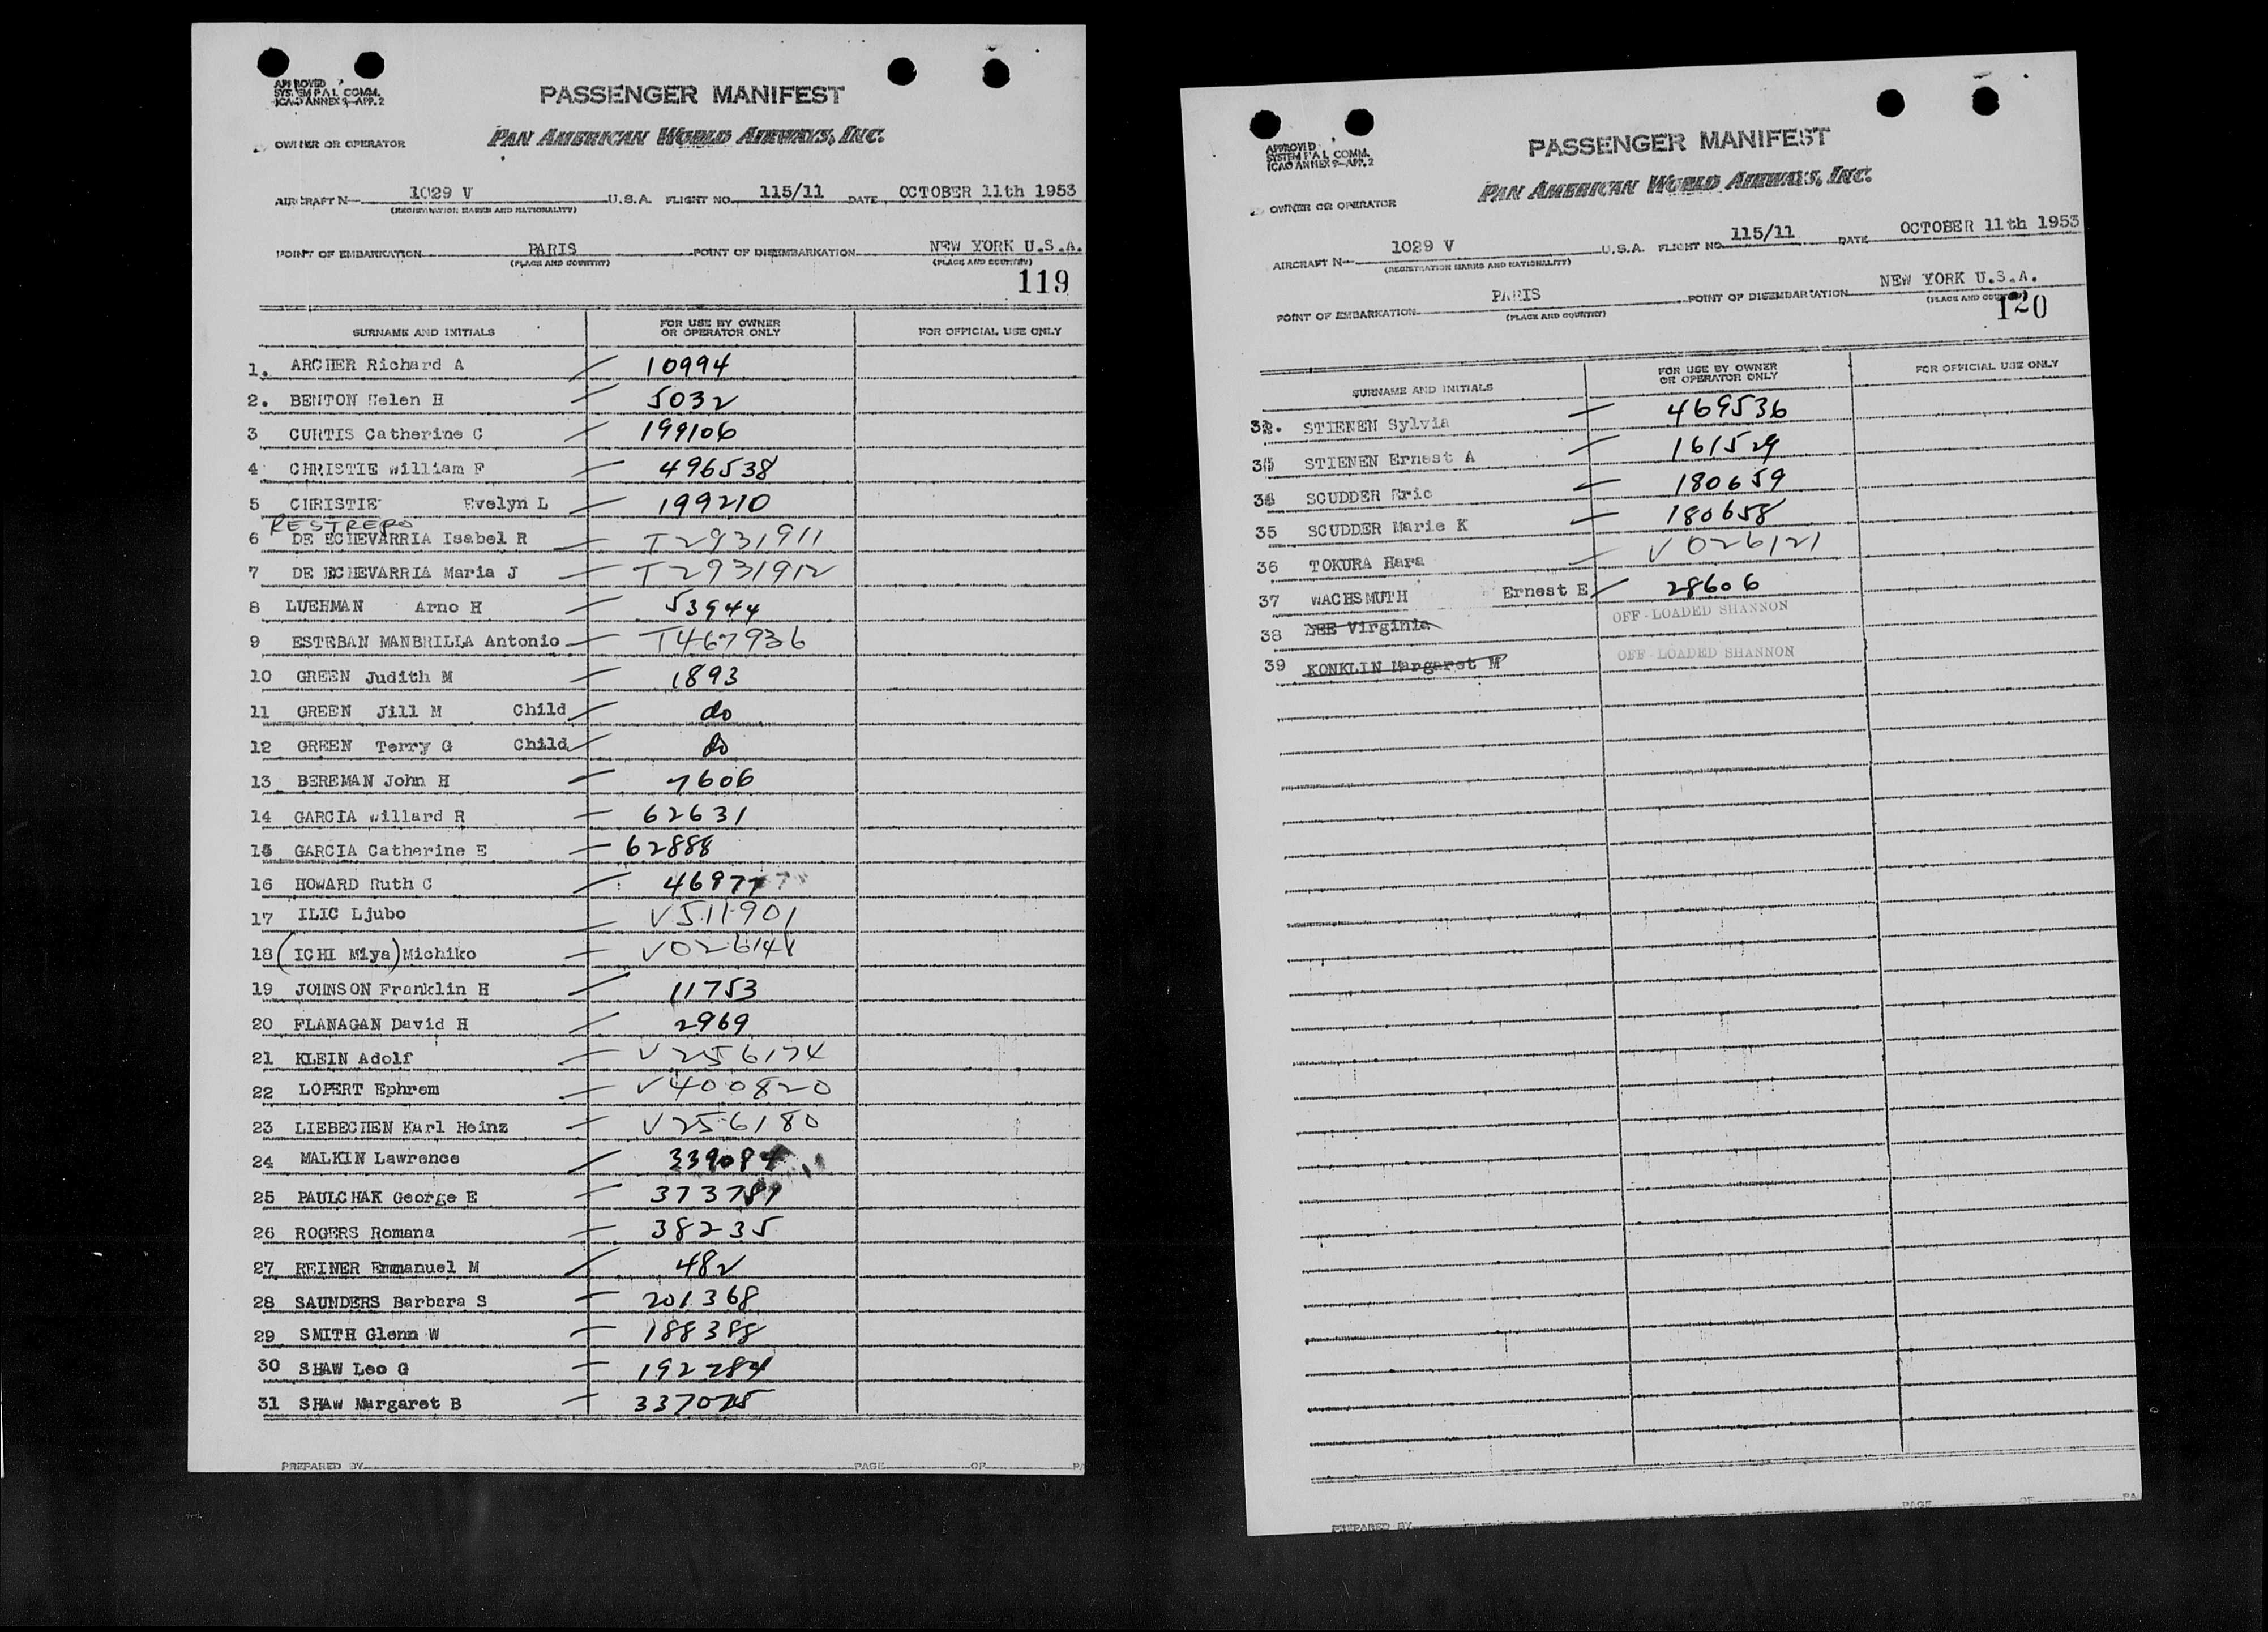 APPROVED
SYSTEM P A L COMM.
ICAO ANNEX 9-APP. 2
PASSENGER MANIFEST
OWNER OR OPERATOR
PAN AMERICAN WORLD AIRWAYS, INC.
AIRCRAFT N— 1029 V U.S.A. FLIGHT NO. 115/11 DATE OCTOBER 11th 1953
(REGISTRATION MARKS AND NATIONALITY)
POINT OF EMBARKATION PARIS POINT OF DISEMBARKATION NEW YORK U.S.A.
(PLACE AND COUNTRY) (PLACE AND COUNTRY)
119
SURNAME AND INITIALS FOR USE BY OWNER OR OPERATOR ONLY FOR OFFICIAL USE ONLY
1. ARCHER Richard A — 10994
2. BENTON Helen H — 5032
3 CURTIS Catherine C — 199106
4 CHRISTIE william F — 496538
5 CHRISTIE Evelyn L — 199210
RESTREPO
6 DE ECHEVARRIA Isabel R — T2931911
7 DE ECHEVARRIA Maria J — T2931912
8 LUEHMAN Arno H — 53944
9 ESTEBAN MANBRILLA Antonio — T467936
10 GREEN Judith M — 1893
11 GREEN Jill M Child — do
12 GREEN Terry G Child — do
13 BEREMAN John H — 7606
14 GARCIA willard R — 62631
15 GARCIA Catherine E — 62888
16 HOWARD Ruth C — 46977
17 ILIC Ljubo — V511901
18 (ICHI Miya) Michiko —
19 JOHNSON Franklin H — 11753
20 FLANAGAN David H — 2969
21 KLEIN Adolf — V256174
22 LOPERT Ephrem — V400820
23 LIEBECHEN Karl Heinz — V256180
24 MALKIN Lawrence — 339084
25 PAULCHAK George E —
26 ROGERS Romana — 38235
27 REINER Emmanuel M — 482
28 SAUNDERS Barbara S — 201368
29 SMITH Glenn W — 188388
30 SHAW Leo G — 192284
31 SHAW Margaret B —
PREPARED BY PAGE OF
APPROVED
SYSTEM P A L COMM.
ICAO ANNEX 9-APP. 2
PASSENGER MANIFEST
OWNER OR OPERATOR
PAN AMERICAN WORLD AIRWAYS, INC.
AIRCRAFT N— 1029 V U.S.A. FLIGHT NO. 115/11 DATE OCTOBER 11th 1953
(REGISTRATION MARKS AND NATIONALITY)
POINT OF EMBARKATION PARIS POINT OF DISEMBARKATION NEW YORK U.S.A.
(PLACE AND COUNTRY) (PLACE AND COUNTRY)
120
SURNAME AND INITIALS FOR USE BY OWNER OR OPERATOR ONLY FOR OFFICIAL USE ONLY
32. STIENEN Sylvia — 469536
33 STIENEN Ernest A — 161529
34 SCUDDER Eric — 180659
35 SCUDDER Marie K — 180658
36 TOKURA Hara — V026121
37 WACHSMUTH Ernest E — 28606
38 Virginia OFF-LOADED SHANNON
39 KONKLIN Margaret M OFF-LOADED SHANNON
PREPARED BY PAGE OF